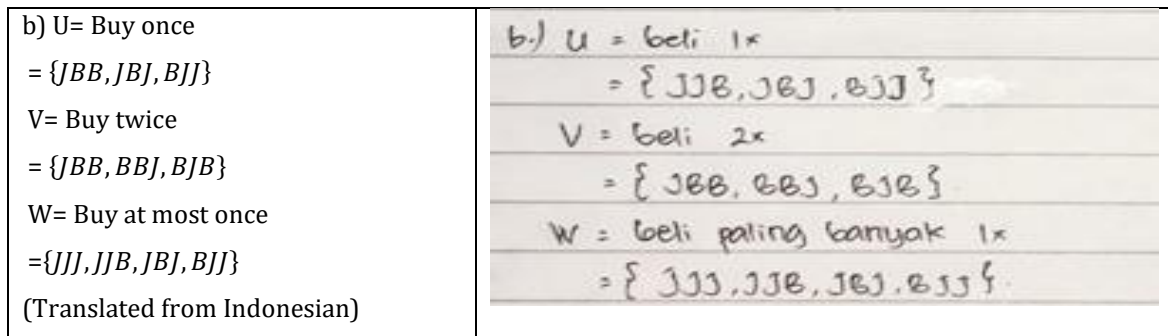 b) U= Buy once
= {JBB, JBJ, BJJ}
V= Buy twice
= {JBB, BBJ, BJB}
W= Buy at most once
={JJJ, JJB, JBJ, BJJ}
(Translated from Indonesian)
b.) U = beli 1x
= { JJB, JBJ, BJJ }
V = beli 2x
= { JBB, BBJ, BJB }
W = beli paling banyak 1x
= { JJJ, JJB, JBJ, BJJ }.